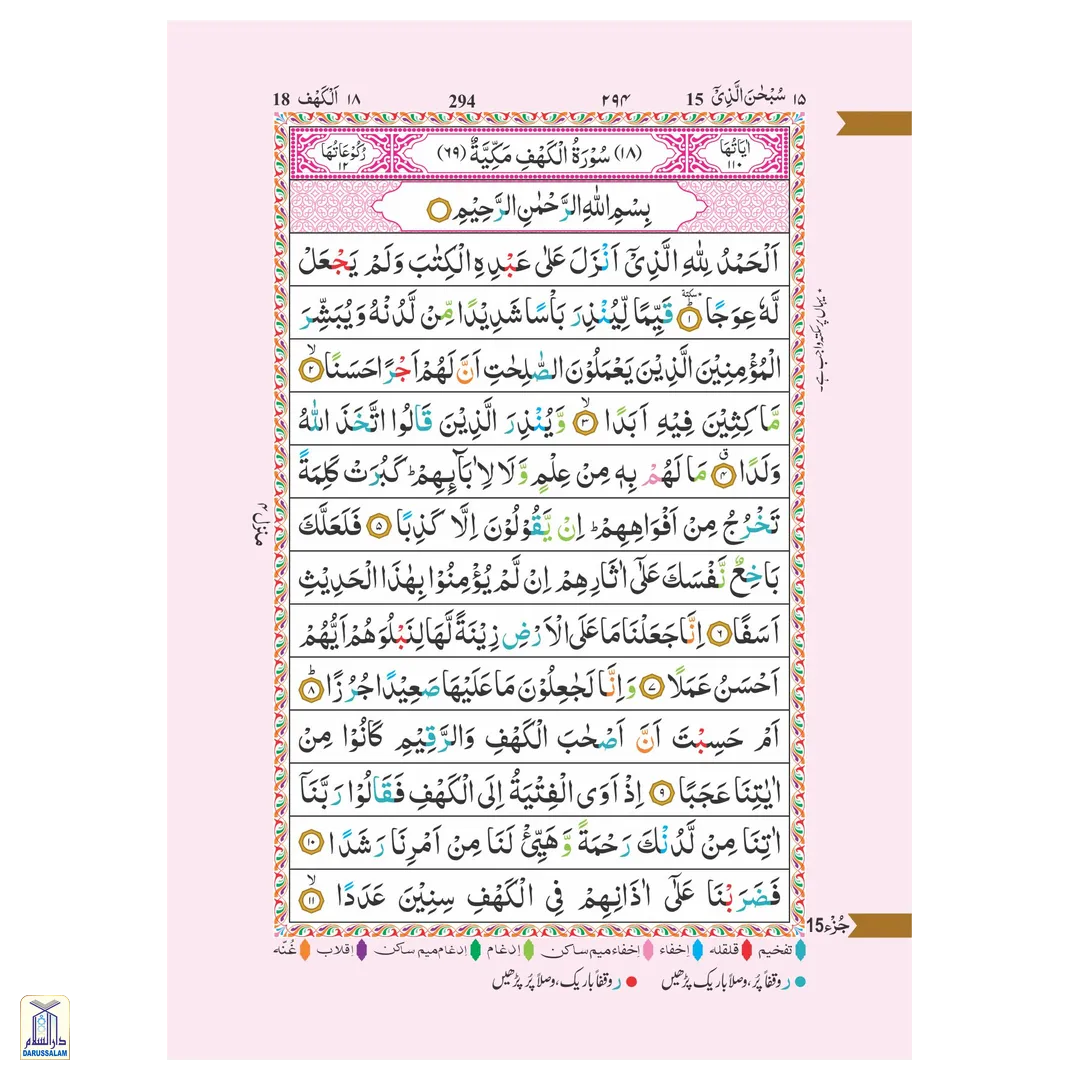 ١٥ سُبْحٰنَ الَّذِیْۤ 15 ٢٩۴ 294 ١٨ اَلْكَهْف 18
اٰیَاتُهَا ١١٠ (١٨) سُوْرَةُ الْكَهْفِ مَكِّیَّةٌ (٦٩) رُكُوْعَاتُهَا ١٢
بِسْمِ اللّٰهِ الرَّحْمٰنِ الرَّحِیْمِ
اَلْحَمْدُ لِلّٰهِ الَّذِیْۤ اَنْزَلَ عَلٰی عَبْدِهِ الْكِتٰبَ وَلَمْ یَجْعَلْ
لَّهٗ عِوَجًا ١ سكتة قَیِّمًا لِّیُنْذِرَ بَاْسًا شَدِیْدًا مِّنْ لَّدُنْهُ وَیُبَشِّرَ
الْمُؤْمِنِیْنَ الَّذِیْنَ یَعْمَلُوْنَ الصّٰلِحٰتِ اَنَّ لَهُمْ اَجْرًا حَسَنًا ٢
مَّاكِثِیْنَ فِیْهِ اَبَدًا ٣ وَّیُنْذِرَ الَّذِیْنَ قَالُوا اتَّخَذَ اللّٰهُ
وَلَدًا ۴ مَا لَهُمْ بِهٖ مِنْ عِلْمٍ وَّلَا لِاٰبَآىِٕهِمْ ؕ كَبُرَتْ كَلِمَةً
تَخْرُجُ مِنْ اَفْوَاهِهِمْ ؕ اِنْ یَّقُوْلُوْنَ اِلَّا كَذِبًا ۵ فَلَعَلَّكَ
بَاخِعٌ نَّفْسَكَ عَلٰۤی اٰثَارِهِمْ اِنْ لَّمْ یُؤْمِنُوْا بِهٰذَا الْحَدِیْثِ
اَسَفًا ٦ اِنَّا جَعَلْنَا مَا عَلَی الْاَرْضِ زِیْنَةً لَّهَا لِنَبْلُوَهُمْ اَیُّهُمْ
اَحْسَنُ عَمَلًا ٧ وَاِنَّا لَجٰعِلُوْنَ مَا عَلَیْهَا صَعِیْدًا جُرُزًا ؕ ٨
اَمْ حَسِبْتَ اَنَّ اَصْحٰبَ الْكَهْفِ وَالرَّقِیْمِ كَانُوْا مِنْ
اٰیٰتِنَا عَجَبًا ٩ اِذْ اَوَی الْفِتْیَةُ اِلَی الْكَهْفِ فَقَالُوْا رَبَّنَاۤ
اٰتِنَا مِنْ لَّدُنْكَ رَحْمَةً وَّهَیِّئْ لَنَا مِنْ اَمْرِنَا رَشَدًا ١٠
فَضَرَبْنَا عَلٰۤی اٰذَانِهِمْ فِی الْكَهْفِ سِنِیْنَ عَدَدًا ١١
۰ یہاں پر سکتہ واجب ہے۔
منزل ۴
جُزْء 15
تفخیم قلقله إخفاء إخفاءمیم ساکن إدغام إدغام میم ساکن إقلاب غُنّه
ر وقفاً پُر، وصلاً باریک پڑھیں ر وقفاً باریک، وصلاً پُر پڑھیں
دارالسلام
DARUSSALAM